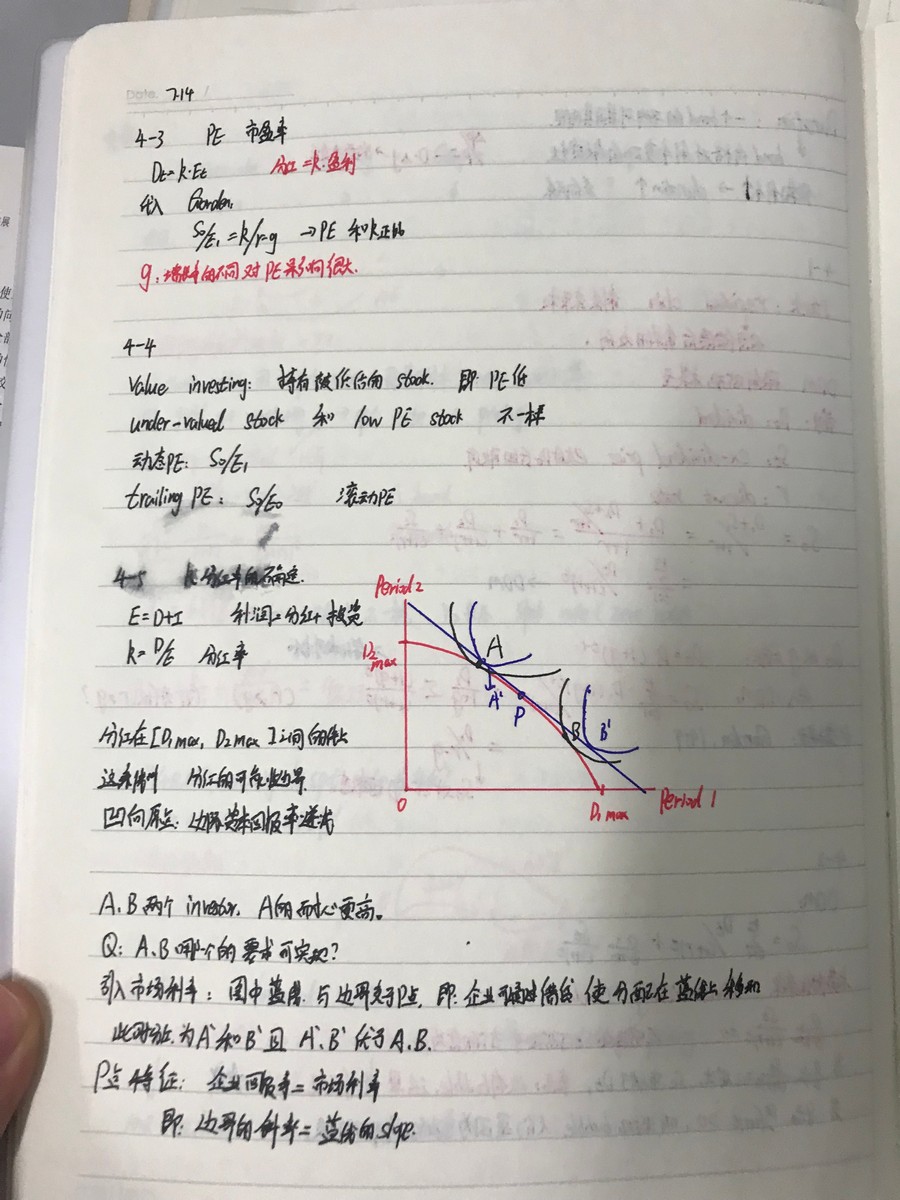 Date 7.14 /
4-3 PE 市盈率
Dt=k·Et 分红=k·盈利
代入 Gordon,
S0/E1=k/r-g →PE 和k正比
g:增长率的不同对PE影响很大.
4-4
Value investing: 持有被低估的 stock. 即 PE低
under-valued stock 和 low PE stock 不一样
动态PE: S0/E1
trailing PE: S0/E0 滚动PE
4-5 分红率的确定.
E=D+I 利润=分红+投资
k=D/E 分红率
Period 2
D2 max
A
A'
P
B
B'
0
D1 max
Period 1
分红在[D1 max, D2 max]之间的
分红的可能性边界
凹向原点: 边际资本回报率递减
A.B两个 investor, A的耐心更高。
Q: A.B哪个的要求可实现?
引入市场利率: 图中蓝线 与边界交于P点, 即:企业可通过借贷 使分配在蓝线上移动
此时 为 A'和B' 且 A'.B' 优于 A.B.
P点特征: 企业回报率=市场利率
即:边界的斜率=蓝线的slope.